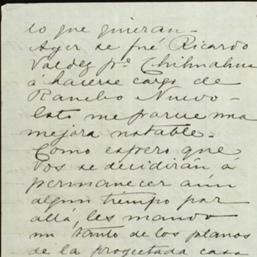 lo que quieran_
Ayer se fué Ricardo
Valdez pª Chihuahua
á hacerse cargo de
Rancho Nuevo_
Esto me parece una
mejora notable_
Como espero que
Vos se decidirán á
permanecer aún
algun tiempo por
allá, les mando
un tanto de los planos
de la proyectada casa